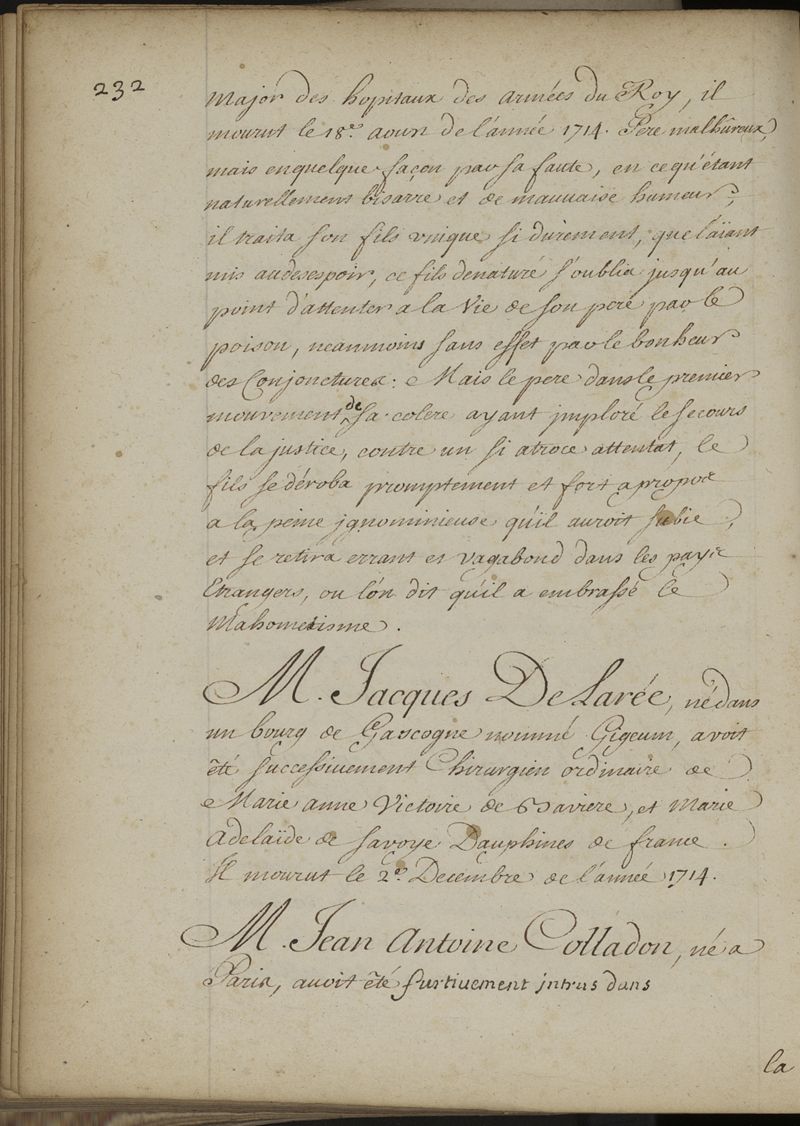 232
Major des hopitaux des armées du Roy, il
mourut le 18.e aoust de l'année 1714. Pere malhûreux,
mais en quelque façon par sa faute, en ce qu'étant
naturellement bisarre et de mauuaise humeur,
il traita son fils vnique si durement, que l'aïant
mis au desespoir, ce fils denaturé s'oublia jusqu'au
point d'attenter a la Vie de son pere par le
poison, neanmoins sans effet par le bonheur
des Conjonctures: Mais le pere dans le premier
mouvement de sa colere ayant jmploré le secours
de la justice, contre un si atroce attentat, le
fils se déroba promptement et fort apropos
a la peine jgnominieuse qu'il auroit subie,
et se retira errant et vagabond dans les pays
Etrangers, ou l'on dit qu'il a embrassé le
Mahometisme.
M. Jacques De Larée, né dans
un bourg de Gascogne nommé Gigeum, avoit
êté successiuement Chirurgien ordinaire de
Marie anne Victoire de Baviere, et Marie
Adelaïde de Savoye Dauphines de france.
Il mourut le 2.e Decembre de l'année 1714.
M. Jean Antoine Colladon, né a
Paris, auoit êté furtiuement jntrus dans
la